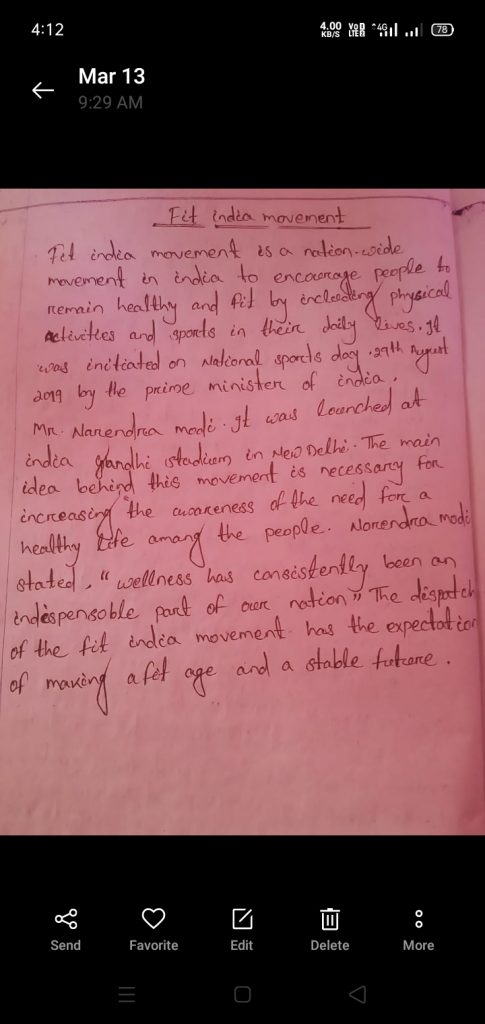 4:12
4.00 KB/S VoD LTE 4G 78
Mar 13
9:29 AM
Fit india movement
Fit india movement is a nation-wide
movement in india to encourage people to
remain healthy and fit by including physical
activities and sports in their daily lives. It
was initiated on National sports day .29th August
2019 by the prime minister of india.
Mr. Narendra modi. It was launched at
india gandhi stadium in New Delhi. The main
idea behind this movement is necessary for
increasing the awareness of the need for a
healthy life amang the people. Norendra modi
stated, "wellness has consistently been an
indespensoble part of our nation" The dispatch
of the fit india movement has the expectation
of making a fit age and a stable future.
Send Favorite Edit Delete More